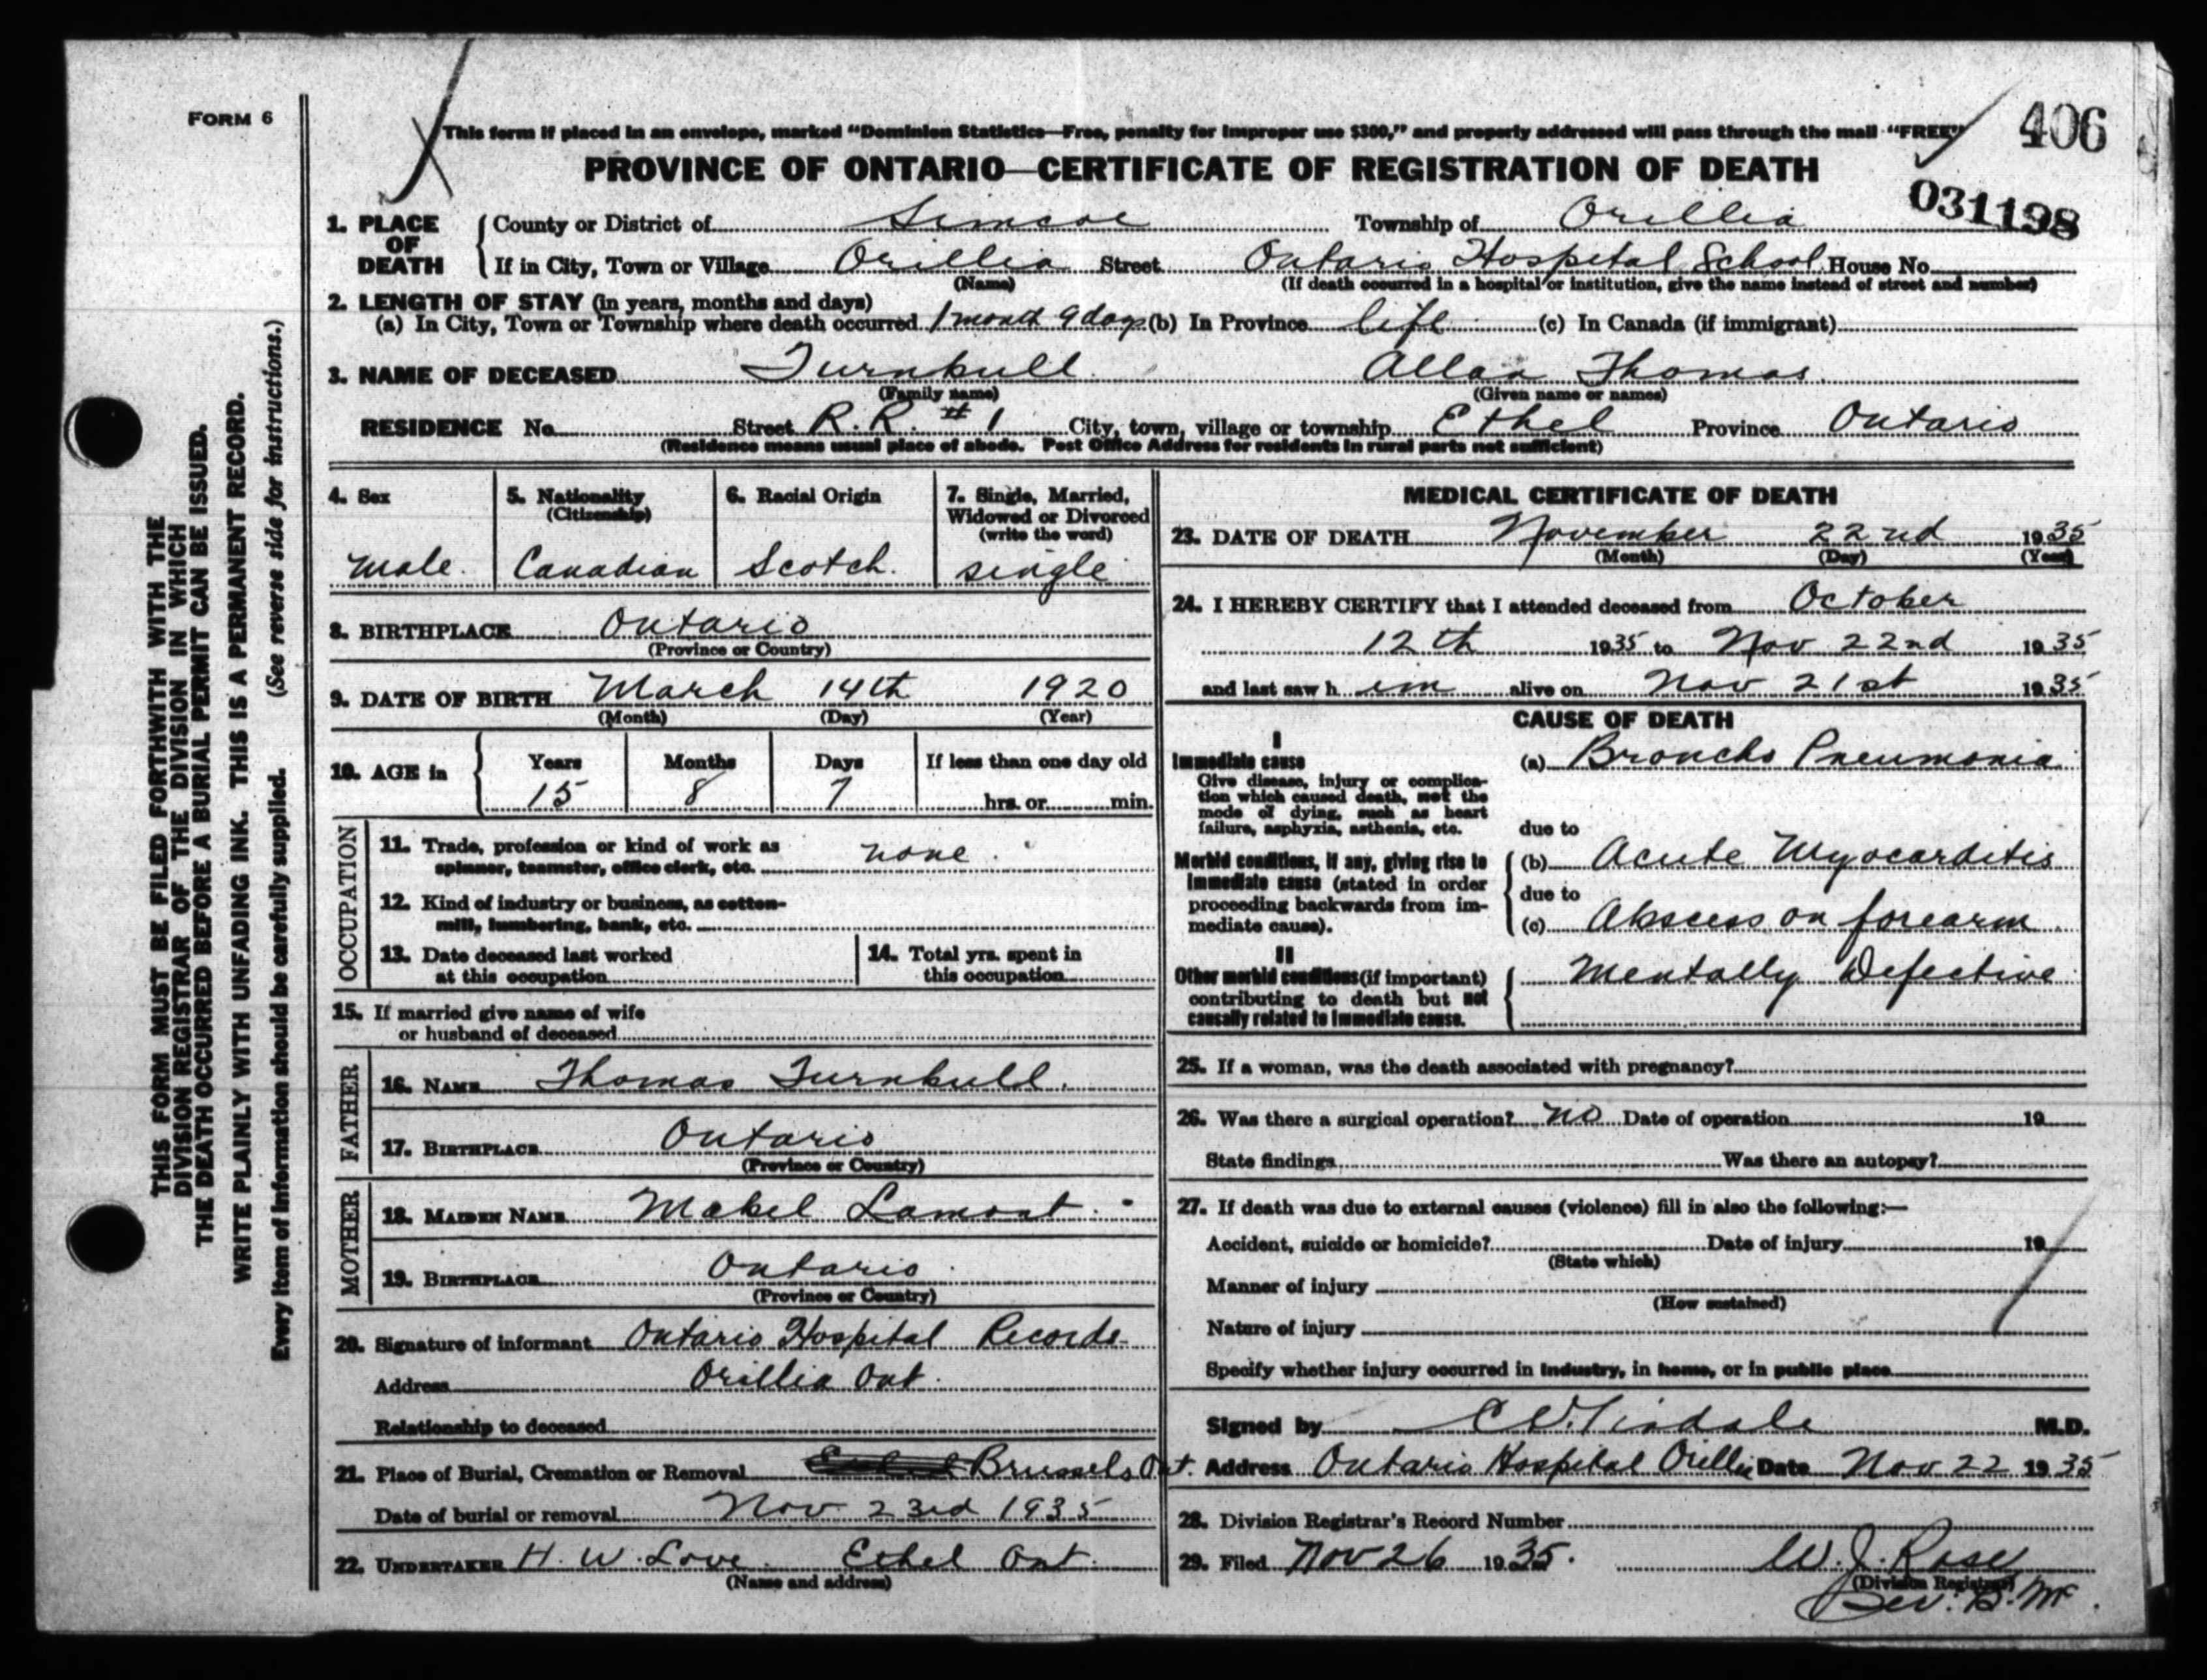 FORM 6
This form if placed in an envelope, marked “Dominion Statistics—Free, penalty for improper use $300,” and properly addressed will pass through the mail “FREE”
406
PROVINCE OF ONTARIO—CERTIFICATE OF REGISTRATION OF DEATH
031198
1. PLACE OF DEATH { County or District of Simcoe Township of Orillia
If in City, Town or Village Orillia Street Ontario Hospital School House No.
(Name) (If death occurred in a hospital or institution, give the name instead of street and number)
2. LENGTH OF STAY (in years, months and days)
(a) In City, Town or Township where death occurred 1 month 9 days (b) In Province life (c) In Canada (if immigrant)
3. NAME OF DECEASED Turnbull Allan Thomas
(Family name) (Given name or names)
RESIDENCE No. Street R.R. # 1 City, town, village or township Ethel Province Ontario
(Residence means usual place of abode. Post Office Address for residents in rural parts not sufficient)
4. Sex
male.
5. Nationality
(Citizenship)
Canadian
6. Racial Origin
Scotch.
7. Single, Married,
Widowed or Divorced
(write the word)
single
8. BIRTHPLACE Ontario
(Province or Country)
9. DATE OF BIRTH March 14th 1920
(Month) (Day) (Year)
10. AGE in { Years Months Days If less than one day old
15 8 7 hrs. or min.
OCCUPATION
11. Trade, profession or kind of work as
spinner, teamster, office clerk, etc. none.
12. Kind of industry or business, as cotton-
mill, lumbering, bank, etc.
13. Date deceased last worked
at this occupation
14. Total yrs. spent in
this occupation
15. If married give name of wife
or husband of deceased
FATHER
16. NAME Thomas Turnbull.
17. BIRTHPLACE Ontario
(Province or Country)
MOTHER
18. MAIDEN NAME Mabel Lamont.
19. BIRTHPLACE Ontario
(Province or Country)
20. Signature of informant Ontario Hospital Records
Address Orillia Ont.
Relationship to deceased
21. Place of Burial, Cremation or Removal Brussels Ont.
Date of burial or removal Nov 23rd 1935
22. UNDERTAKER H. W. Love. Ethel Ont.
(Name and address)
MEDICAL CERTIFICATE OF DEATH
23. DATE OF DEATH November 22nd 1935
(Month) (Day) (Year)
24. I HEREBY CERTIFY that I attended deceased from October
12th 1935 to Nov 22nd 1935
and last saw him alive on Nov 21st 1935
CAUSE OF DEATH
I
Immediate cause (a) Broncho Pneumonia
Give disease, injury or complica-
tion which caused death, not the
mode of dying, such as heart
failure, asphyxia, asthenia, etc. due to
Morbid conditions, if any, giving rise to
immediate cause (stated in order
proceeding backwards from im-
mediate cause).
(b) Acute Myocarditis
due to
(c) Abscess on forearm.
II
Other morbid conditions (if important)
contributing to death but not
causally related to immediate cause.
Mentally Defective
25. If a woman, was the death associated with pregnancy?
26. Was there a surgical operation? no Date of operation 19
State findings Was there an autopsy?
27. If death was due to external causes (violence) fill in also the following:—
Accident, suicide or homicide? Date of injury 19
(State which)
Manner of injury
(How sustained)
Nature of injury
Specify whether injury occurred in industry, in home, or in public place
Signed by Tisdale M.D.
Address Ontario Hospital Orillia Date Nov 22 1935
28. Division Registrar's Record Number
29. Filed Nov 26 1935. W. J. Rose
(Division Registrar)
THIS FORM MUST BE FILED FORTHWITH WITH THE
DIVISION REGISTRAR OF THE DIVISION IN WHICH
THE DEATH OCCURRED BEFORE A BURIAL PERMIT CAN BE ISSUED.
WRITE PLAINLY WITH UNFADING INK. THIS IS A PERMANENT RECORD.
Every item of information should be carefully supplied. (See reverse side for instructions.)